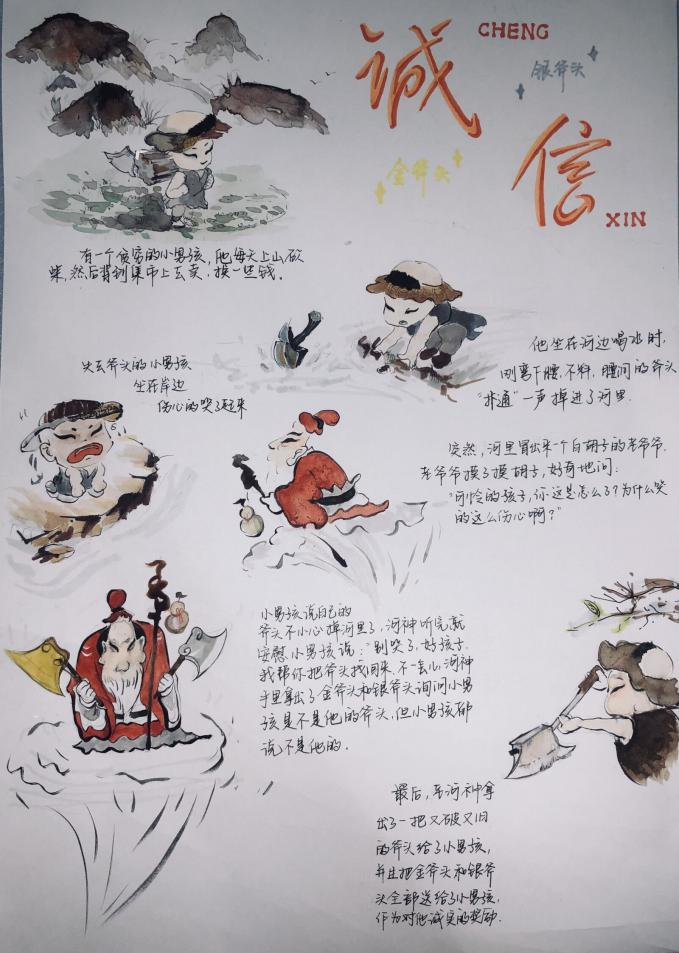 诚
CHENG
银斧头
信
金斧头
XIN
有一个贫穷的小男孩，他每天上山砍
柴，然后背到集市上去卖，换一些钱。
他坐在河边喝水时，
刚弯下腰，不料，腰间的斧头
“扑通”一声掉进了河里.
失去斧头的小男孩
坐在岸边
伤心的哭了起来
突然，河里冒出来一个白胡子的老爷爷.
老爷爷摸了摸胡子，好奇地问：
“可怜的孩子，你这是怎么了？为什么哭
的这么伤心啊？”
小男孩说自己的
斧头不小心掉河里了，河神听完就
安慰小男孩说：“别哭了，好孩子.
我帮你把斧头找回来.不一会儿，河神
手里拿出了金斧头和银斧头询问小男
孩是不是他的斧头，但小男孩都
说不是他的.
最后，河神拿
出了一把又破又旧
的斧头给了小男孩，
并且把金斧头和银斧
头全部送给了小男孩，
作为对他诚实的奖励.